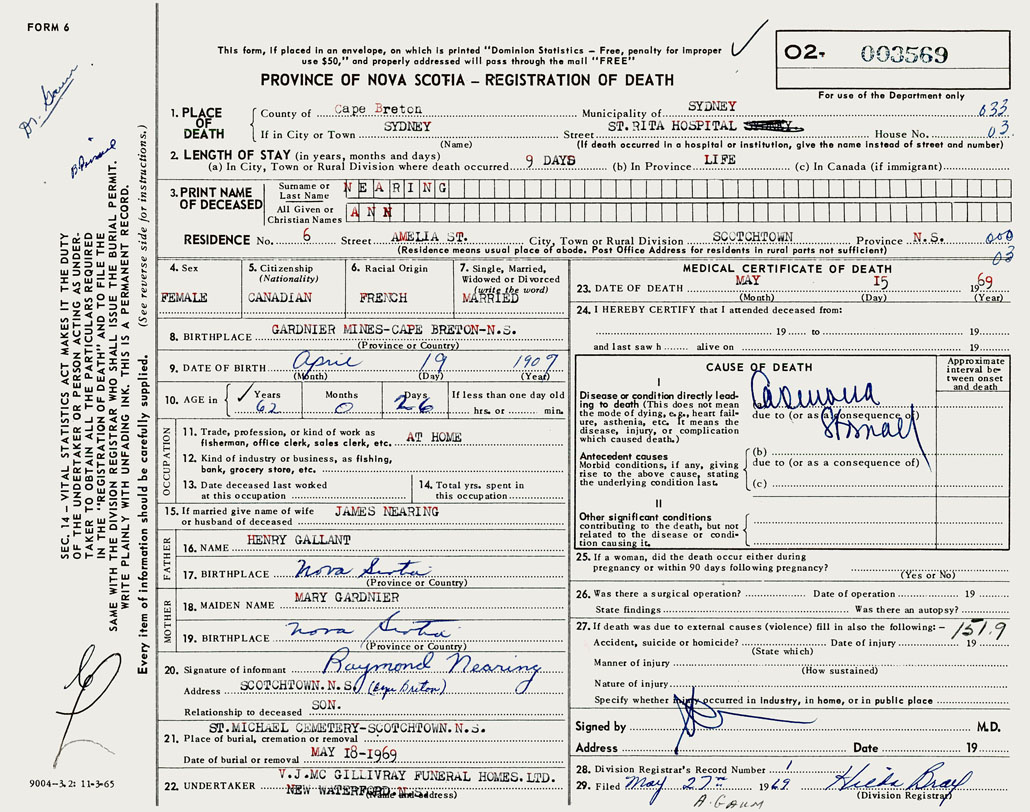 FORM 6
This form, if placed in an envelope, on which is printed "Dominion Statistics – Free, penalty for improper
use $50," and properly addressed will pass through the mail "FREE"
O2- 003569
PROVINCE OF NOVA SCOTIA – REGISTRATION OF DEATH
For use of the Department only
1. PLACE OF DEATH
County of Cape Breton Municipality of SYDNEY 033
If in City or Town SYDNEY Street ST.RITA HOSPITAL House No. 03
(Name) (If death occurred in a hospital or institution, give the name instead of street and number)
2. LENGTH OF STAY (in years, months and days)
(a) In City, Town or Rural Division where death occurred 9 DAYS (b) In Province LIFE (c) In Canada (if immigrant)
3. PRINT NAME OF DECEASED
Surname or Last Name NEARING
All Given or Christian Names ANN
RESIDENCE No. 6 Street AMELIA ST. City, Town or Rural Division SCOTCHTOWN Province N.S. 000
(Residence means usual place of abode. Post Office Address for residents in rural parts not sufficient) 03
4. Sex
FEMALE
5. Citizenship
(Nationality)
CANADIAN
6. Racial Origin
FRENCH
7. Single, Married,
Widowed or Divorced
(write the word)
MARRIED
8. BIRTHPLACE GARDNIER MINES-CAPE BRETON-N.S.
(Province or Country)
9. DATE OF BIRTH April 19 1907
(Month) (Day) (Year)
10. AGE in Years Months Days If less than one day old
62 0 26 hrs. or min.
OCCUPATION
11. Trade, profession, or kind of work as
fisherman, office clerk, sales clerk, etc. AT HOME
12. Kind of industry or business, as fishing,
bank, grocery store, etc.
13. Date deceased last worked
at this occupation
14. Total yrs. spent in
this occupation
15. If married give name of wife
or husband of deceased JAMES NEARING
FATHER
16. NAME HENRY GALLANT
17. BIRTHPLACE Nova Scotia
(Province or Country)
MOTHER
18. MAIDEN NAME MARY GARDNIER
19. BIRTHPLACE Nova Scotia
(Province or Country)
20. Signature of informant Raymond Nearing
Address SCOTCHTOWN.N.S. (Cape Breton)
Relationship to deceased SON.
ST.MICHAEL CEMETERY-SCOTCHTOWN.N.S.
21. Place of burial, cremation or removal
Date of burial or removal MAY 18-1969
V.J.MC GILLIVRAY FUNERAL HOMES.LTD.
22. UNDERTAKER NEW WATERFORD.N.S.
(Name and address)
MEDICAL CERTIFICATE OF DEATH
23. DATE OF DEATH MAY 15 1969
(Month) (Day) (Year)
24. I HEREBY CERTIFY that I attended deceased from:
19 to 19
and last saw h alive on 19
CAUSE OF DEATH
Approximate
interval be-
tween onset
and death
I
Disease or condition directly lead-
ing to death (This does not mean
the mode of dying, e.g., heart fail-
ure, asthenia, etc. It means the
disease, injury, or complication
which caused death.)
due to (or as a consequence of)
Antecedent causes
Morbid conditions, if any, giving
rise to the above cause, stating
the underlying condition last.
(b)
due to (or as a consequence of)
(c)
II
Other significant conditions
contributing to the death, but not
related to the disease or condi-
tion causing it.
25. If a woman, did the death occur either during
pregnancy or within 90 days following pregnancy?
(Yes or No)
26. Was there a surgical operation? Date of operation 19
State findings Was there an autopsy?
27. If death was due to external causes (violence) fill in also the following: – 151.9
Accident, suicide or homicide? Date of injury 19
(State which)
Manner of injury
(How sustained)
Nature of injury
Specify whether injury occurred in industry, in home, or in public place
Signed by M.D.
Address Date 19
28. Division Registrar's Record Number 1
29. Filed May 27th 1969 Hilda Bray
(Division Registrar)
A. GAUM
SEC. 14 – VITAL STATISTICS ACT MAKES IT THE DUTY
OF THE UNDERTAKER OR PERSON ACTING AS UNDER-
TAKER TO OBTAIN ALL THE PARTICULARS REQUIRED
IN THE "REGISTRATION OF DEATH" AND TO FILE THE
SAME WITH THE DIVISION REGISTRAR WHO SHALL ISSUE THE BURIAL PERMIT.
WRITE PLAINLY WITH UNFADING INK. THIS IS A PERMANENT RECORD.
Every item of information should be carefully supplied. (See reverse side for instructions.)
Dr. Gaum
9004-3.2: 11-3-65